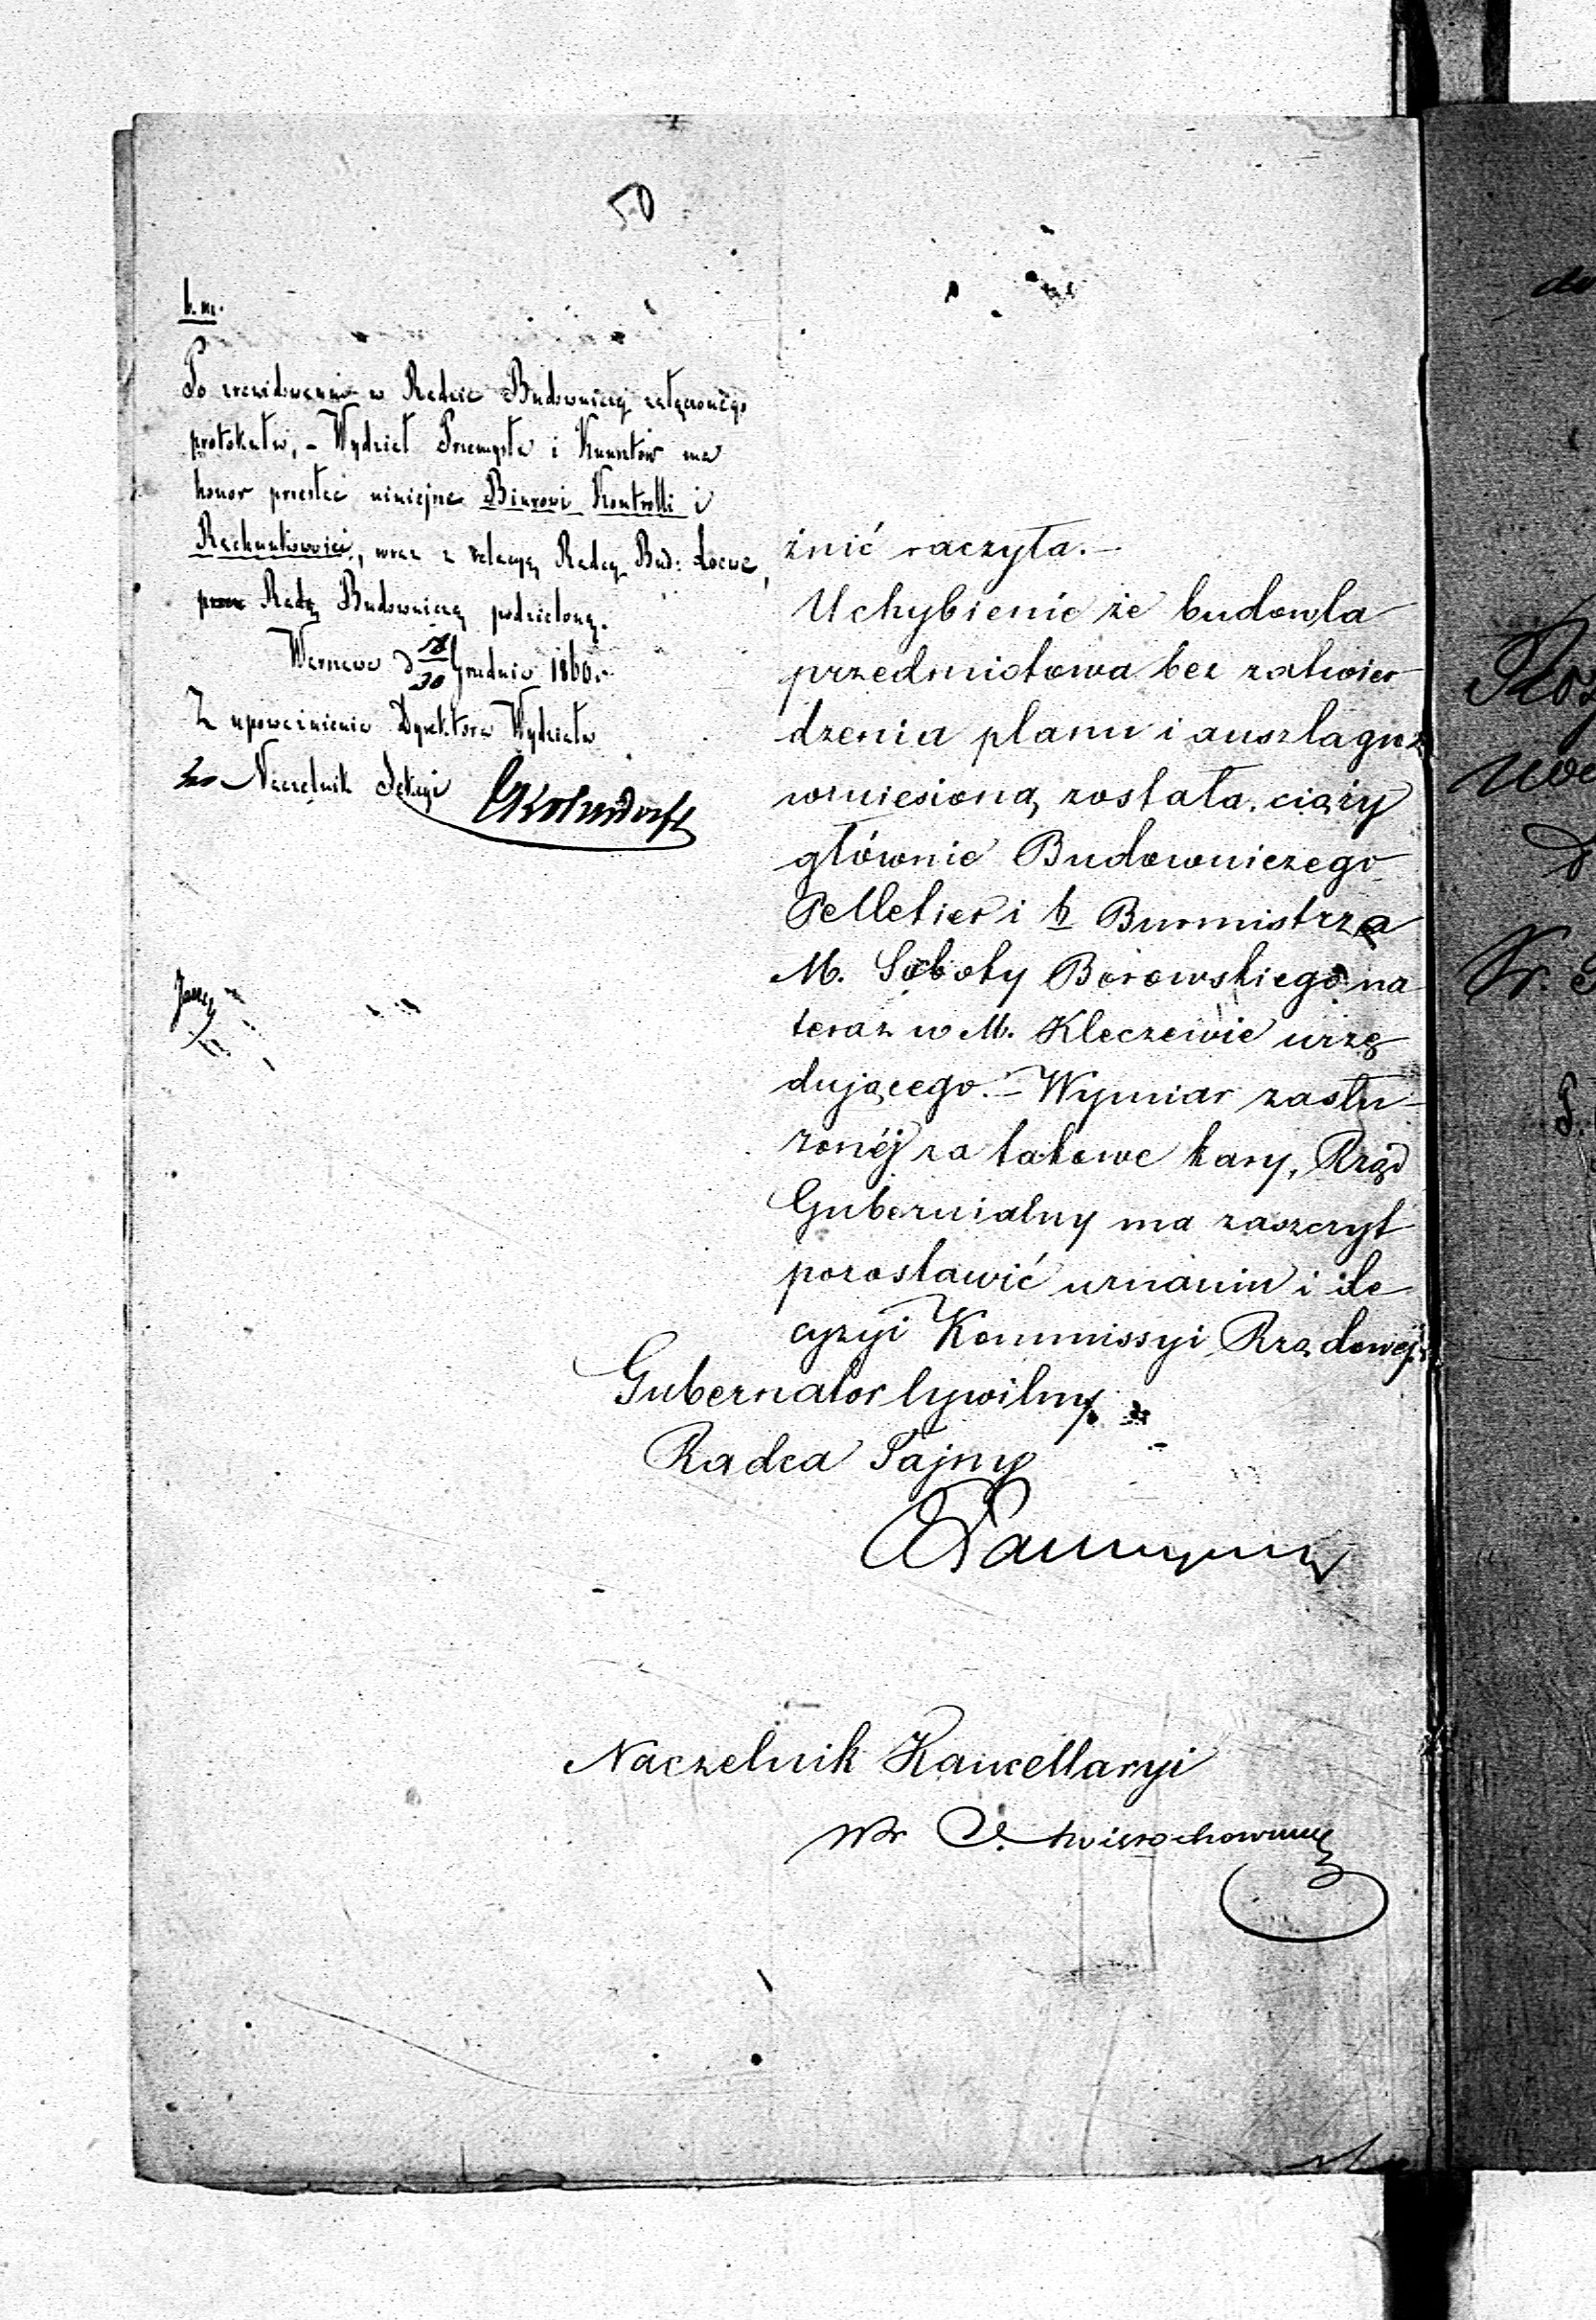 50
b. m.
Po zrewidowaniu w Radzie Budowniczej załączonego
protokułu, - Wydział Przemysłu i Kunsztów ma
honor przesłać niniejsze Biurowi Kontrolli i
Rachunkowości, wraz z relacyą Radcy Bud: Loewe,
przez Radę Budowniczą podzieloną.
Warszawa d 18/30 Grudnia 1860 r.
Z upoważnienia Dyrektora Wydziału
Naczelnik Sekcyi
żnić raczyła. -
Uchybienie że budowla
przedmiotowa bez zatwier
dzenia planu i anszlagu
wzniesioną została, ciąży
głównie Budowniczego
Pelletier i b Burmistrza
M. Soboty Borowskiego na
teraz w M. Kleczewie urzę
dującego. - Wymiar zasłu-
żonéj za takowe kary, Rząd
Gubernialny ma zaszczyt
pozostawić uznaniu i de
cyzyi Kommissyi Rządowej.
Gubernator Cywilny
Radca Tajny
Naczelnik Kancellaryi